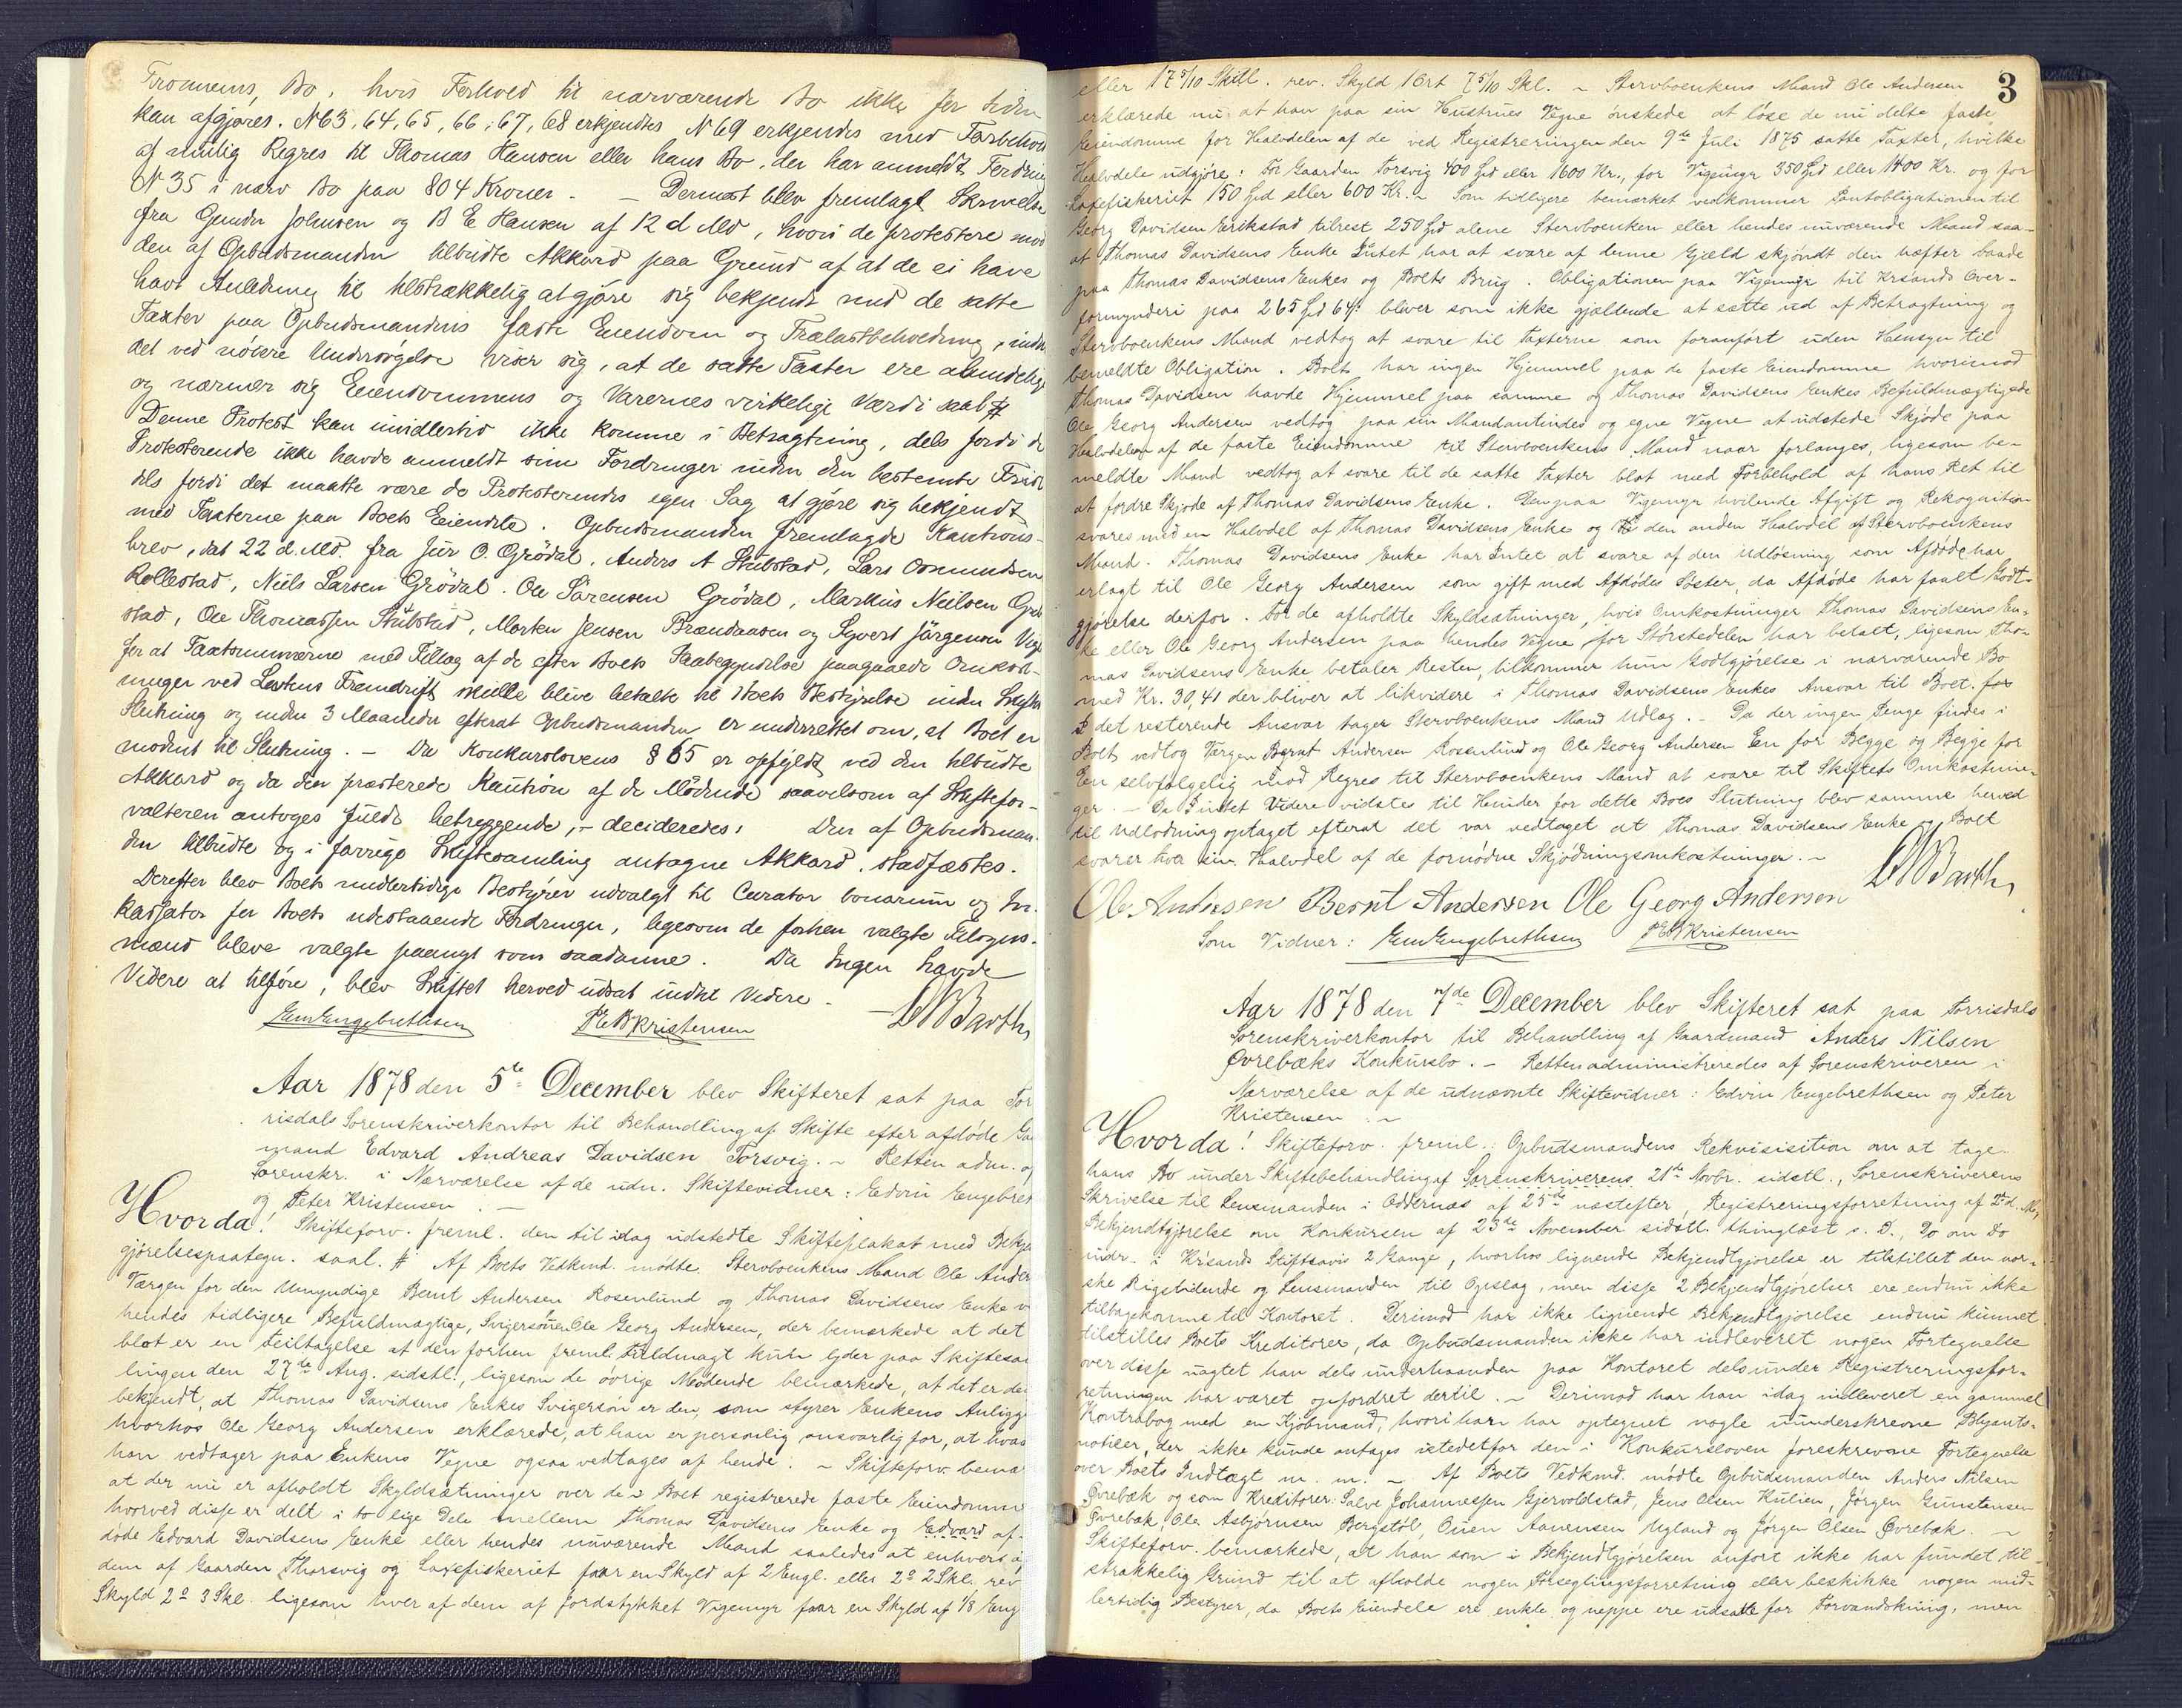 Tromems, Bo, hvis Forhold til nærværende Bo ikke før siden
kan afgjøres. N 63, 64, 65, 66, 67, 68 erkjendtes N 69 erkjendes med Forbehold
af mulig Regres til Thomas Hansen eller hans Bo, der har anmeldt Fordring
N 35 i nærv Bo paa 804 Kroner. – Dernæst blev fremlagt Skrivelse
fra Gunder Johnsen og B E Hansen af 12 d Md, hvori de protestere mod
den af Opbudsmanden tilbudte Akkord paa Grund af at de ei have
havt Anledning til tilstrækkelig at gjøre sig bekjendt med de satte
Taxter paa Opbudsmandens faste Eiendom og Trælastbeholdning, inden
det ved nöiere Undersögelse viser sig, at de satte Taxter ere almindelige
og nærmer sig Eiendommens og Varernes virkelige Værdi saal #
Denne Protest kan imidlertid ikke komme i Betragtning, dels fordi de
Protesterende ikke havde anmeldt sine Fordringer inden den bestemte Frist
dels fordi det maatte være de Protesterendes egen Sag at gjøre sig bekjendt
med Taxterne paa Boets Eiendele. Opbudsmanden fremlagde Kautions-
brev, dat 22 d. Md. fra Jur O. Grödal, Anders A Stubstad, Lars Osmundsen
Rollestad, Niels Larsen Grödal. Ole Sörensen Grödal, Markus Neilsen Grö
stad, Ole Thomassen Stubstad, Morten Jensen Brændaasen og Syvert Jörgensen Vig
for at Taxtsummerne med Tillæg af de efter Boets Paabegyndelse paagaaede Omkost-
ninger ved Lastens Fremdrift skulle blive betalte til Boets Bestyrelse inden Skiftets
Slutning og inden 3 Maaneder efterat Opbudsmanden er underrettet om, at Boet er
modent til Slutning. – Da Konkurslovens § 65 er opfyldt ved den tilbudte
Akkord og da den præsterede Kaution af de Mödende saavelsom af Skiftefor-
valteren antoges fuldt betryggende, – decideredes: Den af Opbudsman-
den tilbudte og i forrige Skiftesamling antagne Akkord, stadfæstes.
Derefter blev Boets midlertidige Bestyrer udvalgt til Curator bonorum og In-
kassator for Boets udestaaende Fordringer, ligesom de forhen valgte Tilsyns-
mænd bleve valgte paanyt som saadanne. Da Ingen havde
Videre at tilföre, blev Skiftet herved udsat indtil Videre.
Edv Engebrethsen P E B Kristensen Barth
Aar 1878 den 5te December blev Skifteret sat paa Tor
risdals Sorenskriverkontor til Behandling af Skifte efter afdøde Ga
mand Edvard Andreas Davidsen Torsvig. – Retten adm. af
Sorenskr. i Nærværelse af de udn. Skiftevidner: Edvin Engebret
og Peter Kristensen. –
Hvorda! Skifteforv. freml. den til idag udstedte Skifteplakat med Bekjendt
gjörelsespaategn. saal. # Af Boets Vedkmd. mödte Stervboenkens Mand Ole Ander
Værgen for den Umyndige Bernt Andersen Rosenlund og Thomas Davidsens Enke v
hendes tidligere Befuldmægtige, Svigersönnen Ole Georg Andersen, der bemærkede at det
blot er en Feiltagelse at den forhen freml. Fuldmagt kun lyder paa Skiftesam
lingen den 27te Aug. sidstl., ligesom de övrige Mödende bemærkede, at det er dem
bekjendt, at Thomas Davidsens Enkes Svigersön er den, som styrer Enkens Anligge
hvorhos Ole Georg Andersen erklærede, at han er personlig ansvarlig for, at hvad
han vedtager paa Enkens Vegne ogsaa vedtages af hende. – Skifteforv. bemær
at der nu er afholdt Skyldsætninger over de i Boet registrerede faste Eiendomme
hvorved disse er delt i to lige Dele mellem Thomas Davidsens Enke og Edvard af-
döde Edvard Davidsens Enke eller hendes nuværende Mand saaledes at enhver a
dem af Gaarden Thorsvig og Laxefiskeriet faar en Skyld af 2 Engl. eller 2o 2 Skl. rev
Skyld 2o 3 Skl. ligesom hver af dem af Jordstykket Vigemyr faar en Skyld af 1/8 Eng
3
eller 17 5/10 Skill. rev. Skyld 1 Ort 7 5/10 Skl. – Stervboenkens Mand Ole Andersen
erklærede nu at han paa sin Hustrues Vegne önskede at löse de nu delte faste
Eiendomme for Halvdelen af de ved Registreringen den 9de Juli 1875 satte Taxter, hvilke
Halvdele udgjöre: For Gaarden Torsvig 400 Spd eller 1600 Kr., for Vigemyr 350 Spd eller 1400 Kr. og for
Laxefiskeriet 150 Spd eller 600 Kr. – Som tidligere bemærket vedkommer Pantobligationen til
Georg Davidsen Erikstad tilrest 250 Spd alene Stervboenken eller hendes nuværende Mand saa-
at Thomas Davidsens Enke Intet har at svare af denne Gjæld skjöndt den hæfter baade
paa Thomas Davidsens Enkes og Boets Brug. Obligationen paa Vigemyr til Krsands Over-
formynderi paa 265 Spd 64 s bliver som ikke gjældende at sætte ud af Betragtning og
Stervboenkens Mand vedtog at svare til Taxterne som foranfört uden Hensyn til
bemeldte Obligation. Boet har ingen Hjemmel paa de faste Eiendomme hvorimod
Thomas Davidsen havde Hjemmel paa samme og Thomas Davidsens Enkes Befuldmægtigede
Ole Georg Andersen vedtog paa sin Mandantindes og egne Vegne at udstede Skjöde paa
Halvdelen af de faste Eiendomme til Stervboenkens Mand naar forlanges, ligesom be-
meldte Mand vedtog at svare til de satte Taxter blot med Forbehold af hans Ret til
at fordre Skjöde af Thomas Davidsens Enke. Den paa Vigemyr hvilende Afgift og Rekognition
svares med en Halvdel af Thomas Davidsens Enke og den anden Halvdel af Stervboenkens
Mand. Thomas Davidsens Enke har Intet at svare af den Udlösning som Afdöde har
erlagt til Ole Georg Andersen som gift med Afdödes Söster, da Afdöde har faaet Godt-
gjörelse derfor. For de afholdte Skyldsætninger, hvis Omkostninger Thomas Davidsens En-
ke eller Ole Georg Andersen paa hendes Vegne for Störstedelen har betalt, ligesom Tho-
mas Davidsens Enke betaler Resten, tilkommer hun Godtgjörelse i nærværende Bo
med Kr. 30,41 der bliver at likvidere i Thomas Davidsens Enkes Ansvar til Boet. for
I det resterende Ansvar tager Stervboenkens Mand Udlæg. – Da der ingen Penge findes i
Boet, vedtog Værgen Bernt Andersen Rosenlund og Ole Georg Andersen En for Begge og Begge for
En selvfölgelig mod Regres til Stervboenkens Mand at svare til Skiftets Omkostnin-
ger. – Da Intet Videre vidstes til Hinder for dette Boes Slutning blev samme herved
til Udlodning optaget efterat det var vedtaget at Thomas Davidsens Enke og Boet
svarer hver sin Halvdel af de fornödne Skjödningsomkostninger. –
Barth
Ole Andresen Bernt Andersen Ole Georg Anderson
Som Vidner: Edv Engebrethsen P E B Kristensen
Aar 1878 den 7de December blev Skifteret sat paa Torrisdals
Sorenskriverkontor til Behandling af Gaardmand Anders Nilsen
Øvrebæks Konkursbo. – Retten administreredes af Sorenskriveren i
Nærværelse af de udnævnte Skiftevidner: Edvin Engebrethsen og Peter
Kristensen. –
Hvorda! Skifteforv. freml.: Opbudsmandens Rekvisisition om at tage
hans Bo under Skiftebehandling af Sorenskriverens 21de Novbr. sidstl., Sorenskriverens
Skrivelse til Lensmanden i Oddernæs af 25de næstefter, Registreringsforretning af 2 d. M.,
Bekjendtgjörelse om Konkursen af 23de November sidstl. thinglæst s. D., Do om Do
indr. i Krsands Stiftsavis 2 Gange, hvorhos lignende Bekjendtgjörelse er tilstillet den nor-
ske Rigstidende og Lensmanden til Opslag, men disse 2 Bekjendtgjörelser ere endnu ikke
tilbagekomne til Kontoret. Derimod har ikke lignende Bekjendtgjörelse endnu kunnet
tilstilles Boets Kreditorer, da Opbudsmanden ikke har indleveret nogen Fortegnelse
over disse uagtet han dels underhaanden paa Kontoret dels under Registreringsfor-
retningen har været opfordret dertil. – Derimod har han idag indleveret en gammel
Kontrabog med en Kjöbmand, hvori han har optegnet nogle ununderskrevne Blyants-
notiser, der ikke kunde antages istedetfor den i Konkursloven foreskrevne Fortegnelse
over Boets Indtægt m. m. – Af Boets Vedkmd. mödte Opbudsmanden Anders Nilsen
Øvrebæk og som Kreditorer: Salve Johannessen Gjervoldstad, Jens Olsen Kulien, Jörgen Gunstensen
Øvrebæk, Ole Asbjörnsen Bergstöl, Ouen Aanensen Ugland og Jörgen Olsen Øvrebæk. –
Skifteforv. bemærkede, at han som i Bekjendtgjörelsen anfört ikke har fundet til-
strækkelig Grund til at afholde nogen Forseglingsforretning eller beskikke nogen mid-
lertidig Bestyrer, da Boets Eiendele ere enkle og neppe ere udsatte for Forvanskning, men